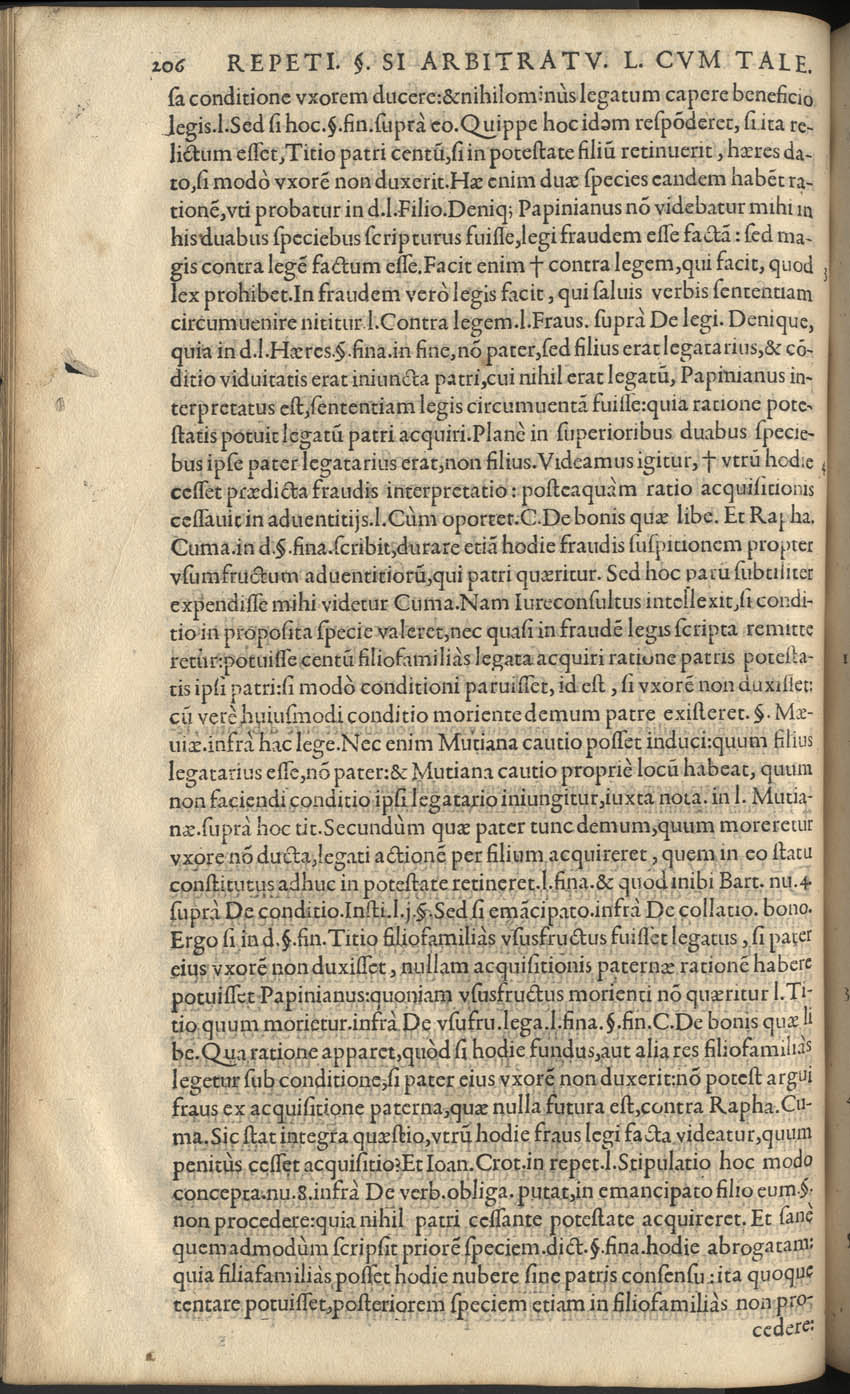 206 REPETI. §. SI ARBITRATV. L. CVM TALE.
ſa conditione vxorem ducere:&nihilominùs legatum capere beneficio
legis.l.Sed ſi hoc.§.fin.ſuprà eo.Quippe hoc idem reſpõderet, ſi ita re-
lictum eſſet,Titio patri centũ,ſi in poteſtate filiũ retinuerit, hæres da-
to,ſi modò vxorẽ non duxerit.Hæ enim duæ ſpecies eandem habẽt ra-
tionẽ,vti probatur in d.l.Filio.Deniq; Papinianus nõ videbatur mihi in
his duabus ſpeciebus ſcripturus fuiſſe,legi fraudem eſſe factã: ſed ma-
gis contra legẽ factum eſſe.Facit enim † contra legem,qui facit, quod 3
lex prohibet.In fraudem verò legis facit, qui ſaluis verbis ſententiam
circumuenire nititur.l.Contra legem.l.Fraus. ſuprà De legi. Denique,
quia in d.l.Hæres.§.fina.in fine,nõ pater,ſed filius erat legatarius,& cõ-
ditio viduitatis erat iniuncta patri,cui nihil erat legatũ, Papinianus in-
terpretatus eſt,ſententiam legis circumuentã fuiſſe:quia ratione pote-
ſtatis potuit legatũ patri acquiri.Planè in ſuperioribus duabus ſpecie-
bus ipſe pater legatarius erat,non filius.Videamus igitur, † vtrũ hodie 4
ceſſet prædicta fraudis interpretatio: poſteaquàm ratio acquiſitionis
ceſſauit in aduentitijs.l.Cùm oportet.C.De bonis quæ libe. Et Rapha.
Cuma.in d.§.fina.ſcribit,durare etiã hodie fraudis ſuſpitionem propter
vſumfructum aduentitiorũ,qui patri quæritur. Sed hoc parũ ſubtiliter
expendiſſe mihi videtur Cuma.Nam Iureconſultus intellexit,ſi condi-
tio in propoſita ſpecie valeret,nec quaſi in fraudẽ legis ſcripta remitte
retur:potuiſſe centũ filiofamiliàs legata acquiri ratione patris poteſta-
tis ipſi patri:ſi modò conditioni paruiſſet, id eſt, ſi vxorẽ non duxiſſet:
cũ verè huiuſmodi conditio moriente demum patre exiſteret. §. Mæ-
uiæ.infrà hac lege.Nec enim Mutiana cautio poſſet induci:quum filius
legatarius eſſe,nõ pater:& Mutiana cautio propriè locũ habeat, quum
non faciendi conditio ipſi legatario iniungitur,iuxta nota. in l. Mutia-
næ.ſuprà hoc tit.Secundùm quæ pater tunc demum,quum moreretur
vxore nõ ducta,legati actionẽ per filium acquireret, quem in eo ſtatu
conſtitutus adhuc in poteſtate retineret.l.fina.& quod inibi Bart. nu.4.
ſuprà De conditio.Inſti.l.j.§.Sed ſi emãcipato.infrà De collatio. bono.
Ergo ſi in d.§.fin.Titio filiofamiliàs vſusfructus fuiſſet legatus, ſi pater
eius vxorẽ non duxiſſet, nullam acquiſitionis paternæ rationẽ habere
potuiſſet Papinianus:quoniam vſusfructus morienti nõ quæritur l.Ti-
tio quum morietur.infrà De vſufru.lega.l.fina.§.fin.C.De bonis quæ li
be.Qua ratione apparet,quòd ſi hodie fundus,aut alia res filiofamiliàs
legetur ſub conditione,ſi pater eius vxorẽ non duxerit:nõ poteſt argui
fraus ex acquiſitione paterna,quæ nulla futura eſt,contra Rapha.Cu-
ma.Sic ſtat integra quæſtio,vtrũ hodie fraus legi facta videatur,quum
penitùs ceſſet acquiſitio?Et Ioan.Crot.in repet.l.Stipulatio hoc modo
concepta.nu.8.infrà De verb.obliga.putat,in emancipato filio eum.§.
non procedere:quia nihil patri ceſſante poteſtate acquireret. Et ſanè
quemadmodùm ſcripſit priorẽ ſpeciem.dict.§.fina.hodie abrogatam:
quia filiafamiliàs poſſet hodie nubere ſine patris conſenſu: ita quoque
tentare potuiſſet,poſteriorem ſpeciem etiam in filiofamiliàs non pro-
cedere: